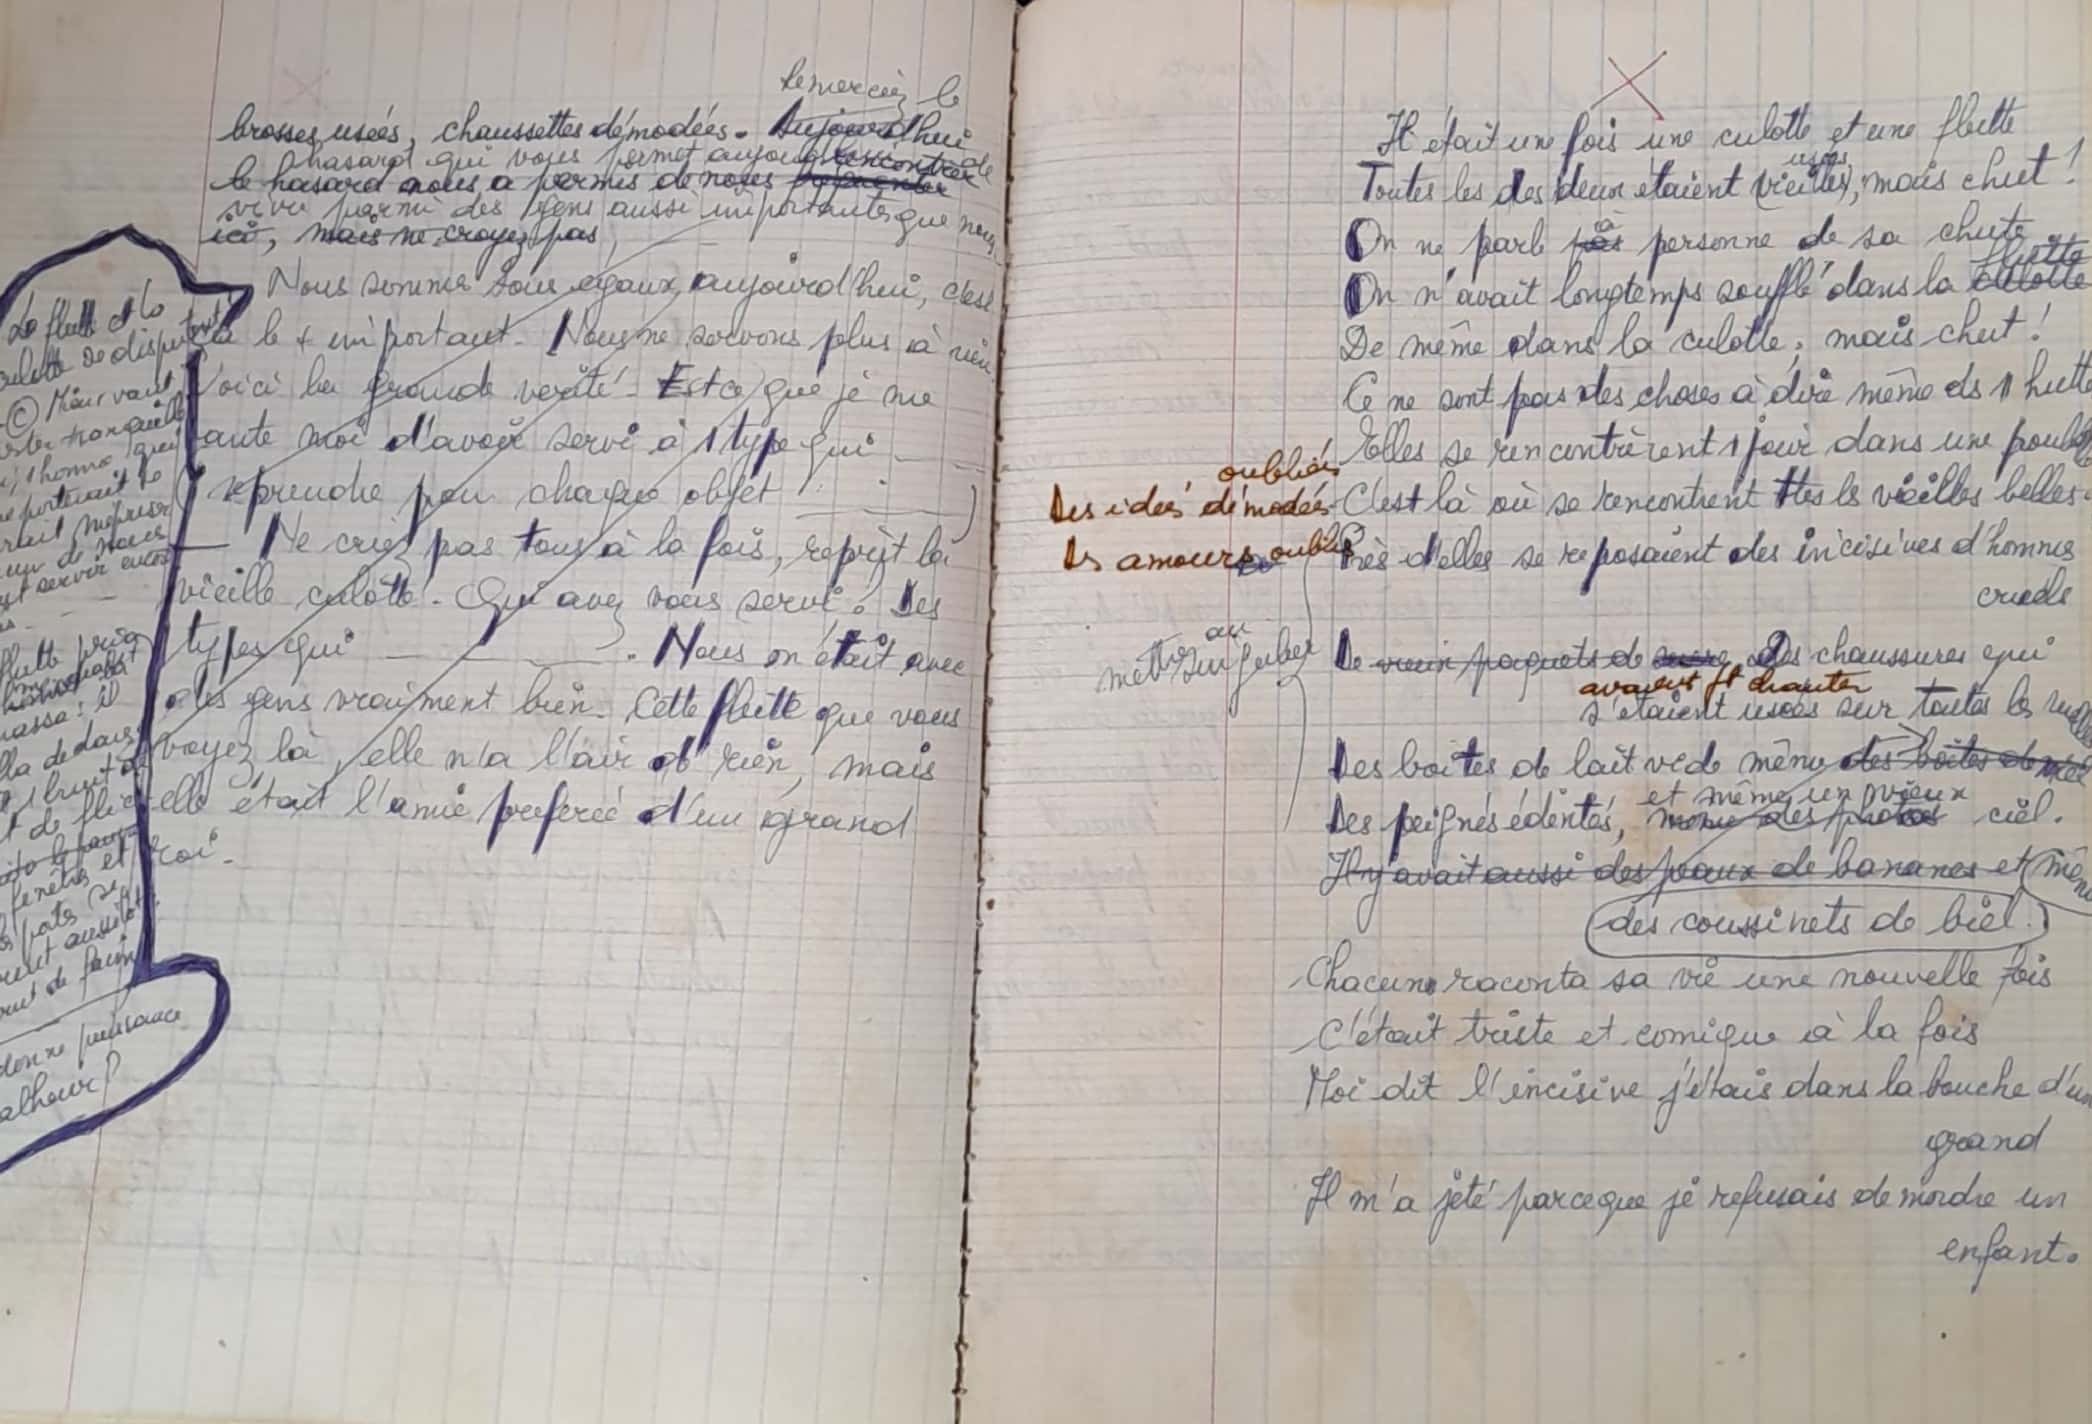 Remerciez le
brosses usées, chaussettes démodées. Aujourd'hui
hasard qui vous permet aujourd'hui de
le hasard nous a permis de nous rencontrer
vivre parmi des gens aussi importants que nous
ici, mais ne croyez pas
Nous sommes tous égaux, aujourd'hui, c'est
là le + important. Nous ne servons plus à rien.
Voici la grande vérité. Est ce que je me
vante moi d'avoir servi à 1 type qui
reprendre pour chaque objet
— Ne criez pas tous à la fois, reprit la
vieille culotte. Qui avez vous servi? Des
types qui . Nous on était avec
des gens vraiment bien. Cette flûte que vous
voyez là, elle n'a l'air d' rien, mais
elle était l'amie preferée d'un grand
roi.
La flute et la
culotte se disputent
© Mieux vaut
rester tranquille
1 homme qui
porterait se
mepriser
un de nous
servir encore
flutte pria
passa : il
la dedans
1 bruit de
t de flu
fenêtres et
portes se
aussitôt
de faim
donne puissance
malheur?
Il était une fois une culotte et une flutte
usées
Toutes les des deux étaient (vieilles), mais chut!
à
On ne parle pas personne de sa chute
flutte
On n'avait longtemps soufflé dans la culotte
De même dans la culotte, mais chut!
Ce ne sont pas des choses à dire même ds 1 hutte
Elles se rencontrèrent 1 jour dans une poubelle
oubliées
Des idées démodées
C'est là où se rencontrent ttes ls vieilles belles.
Ds amours oubliés
Près d'elles se reposaient des incisives d'hommes
cruels
au
mettre singulier
De vieux paquets de sucre Des chaussures qui
avaient ft chanter
s'étaient usées sur toutes les ruelles
Des boîtes de lait vide même des boîtes de miel
et même un vieux
Des peignes édentés, même des photos ciel.
Il y avait aussi des peaux de bananes et même
des coussinets de biel.
Chacune raconta sa vie une nouvelle fois
C'était triste et comique à la fois
Moi dit l'incisive j'étais dans la bouche d'un
grand
Il m'a jeté parceque je refusais de mordre un
enfant.